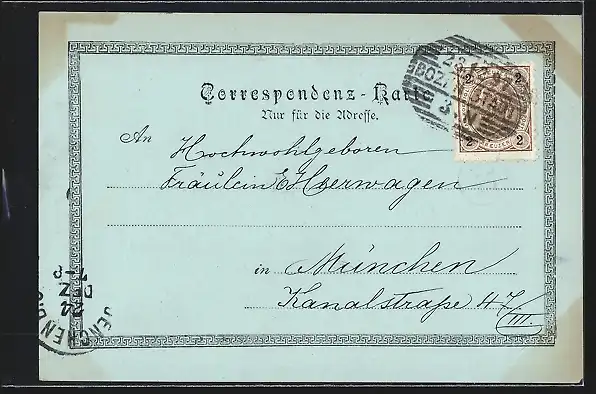 Correspondenz-Karte
Nur für die Adresse.
An Hochwohlgeboren
Fräulein E Hoerwagen
in München
Kanalstraße 47/III.
2 2
2 2
KREUZER
24
DEZ
7-8